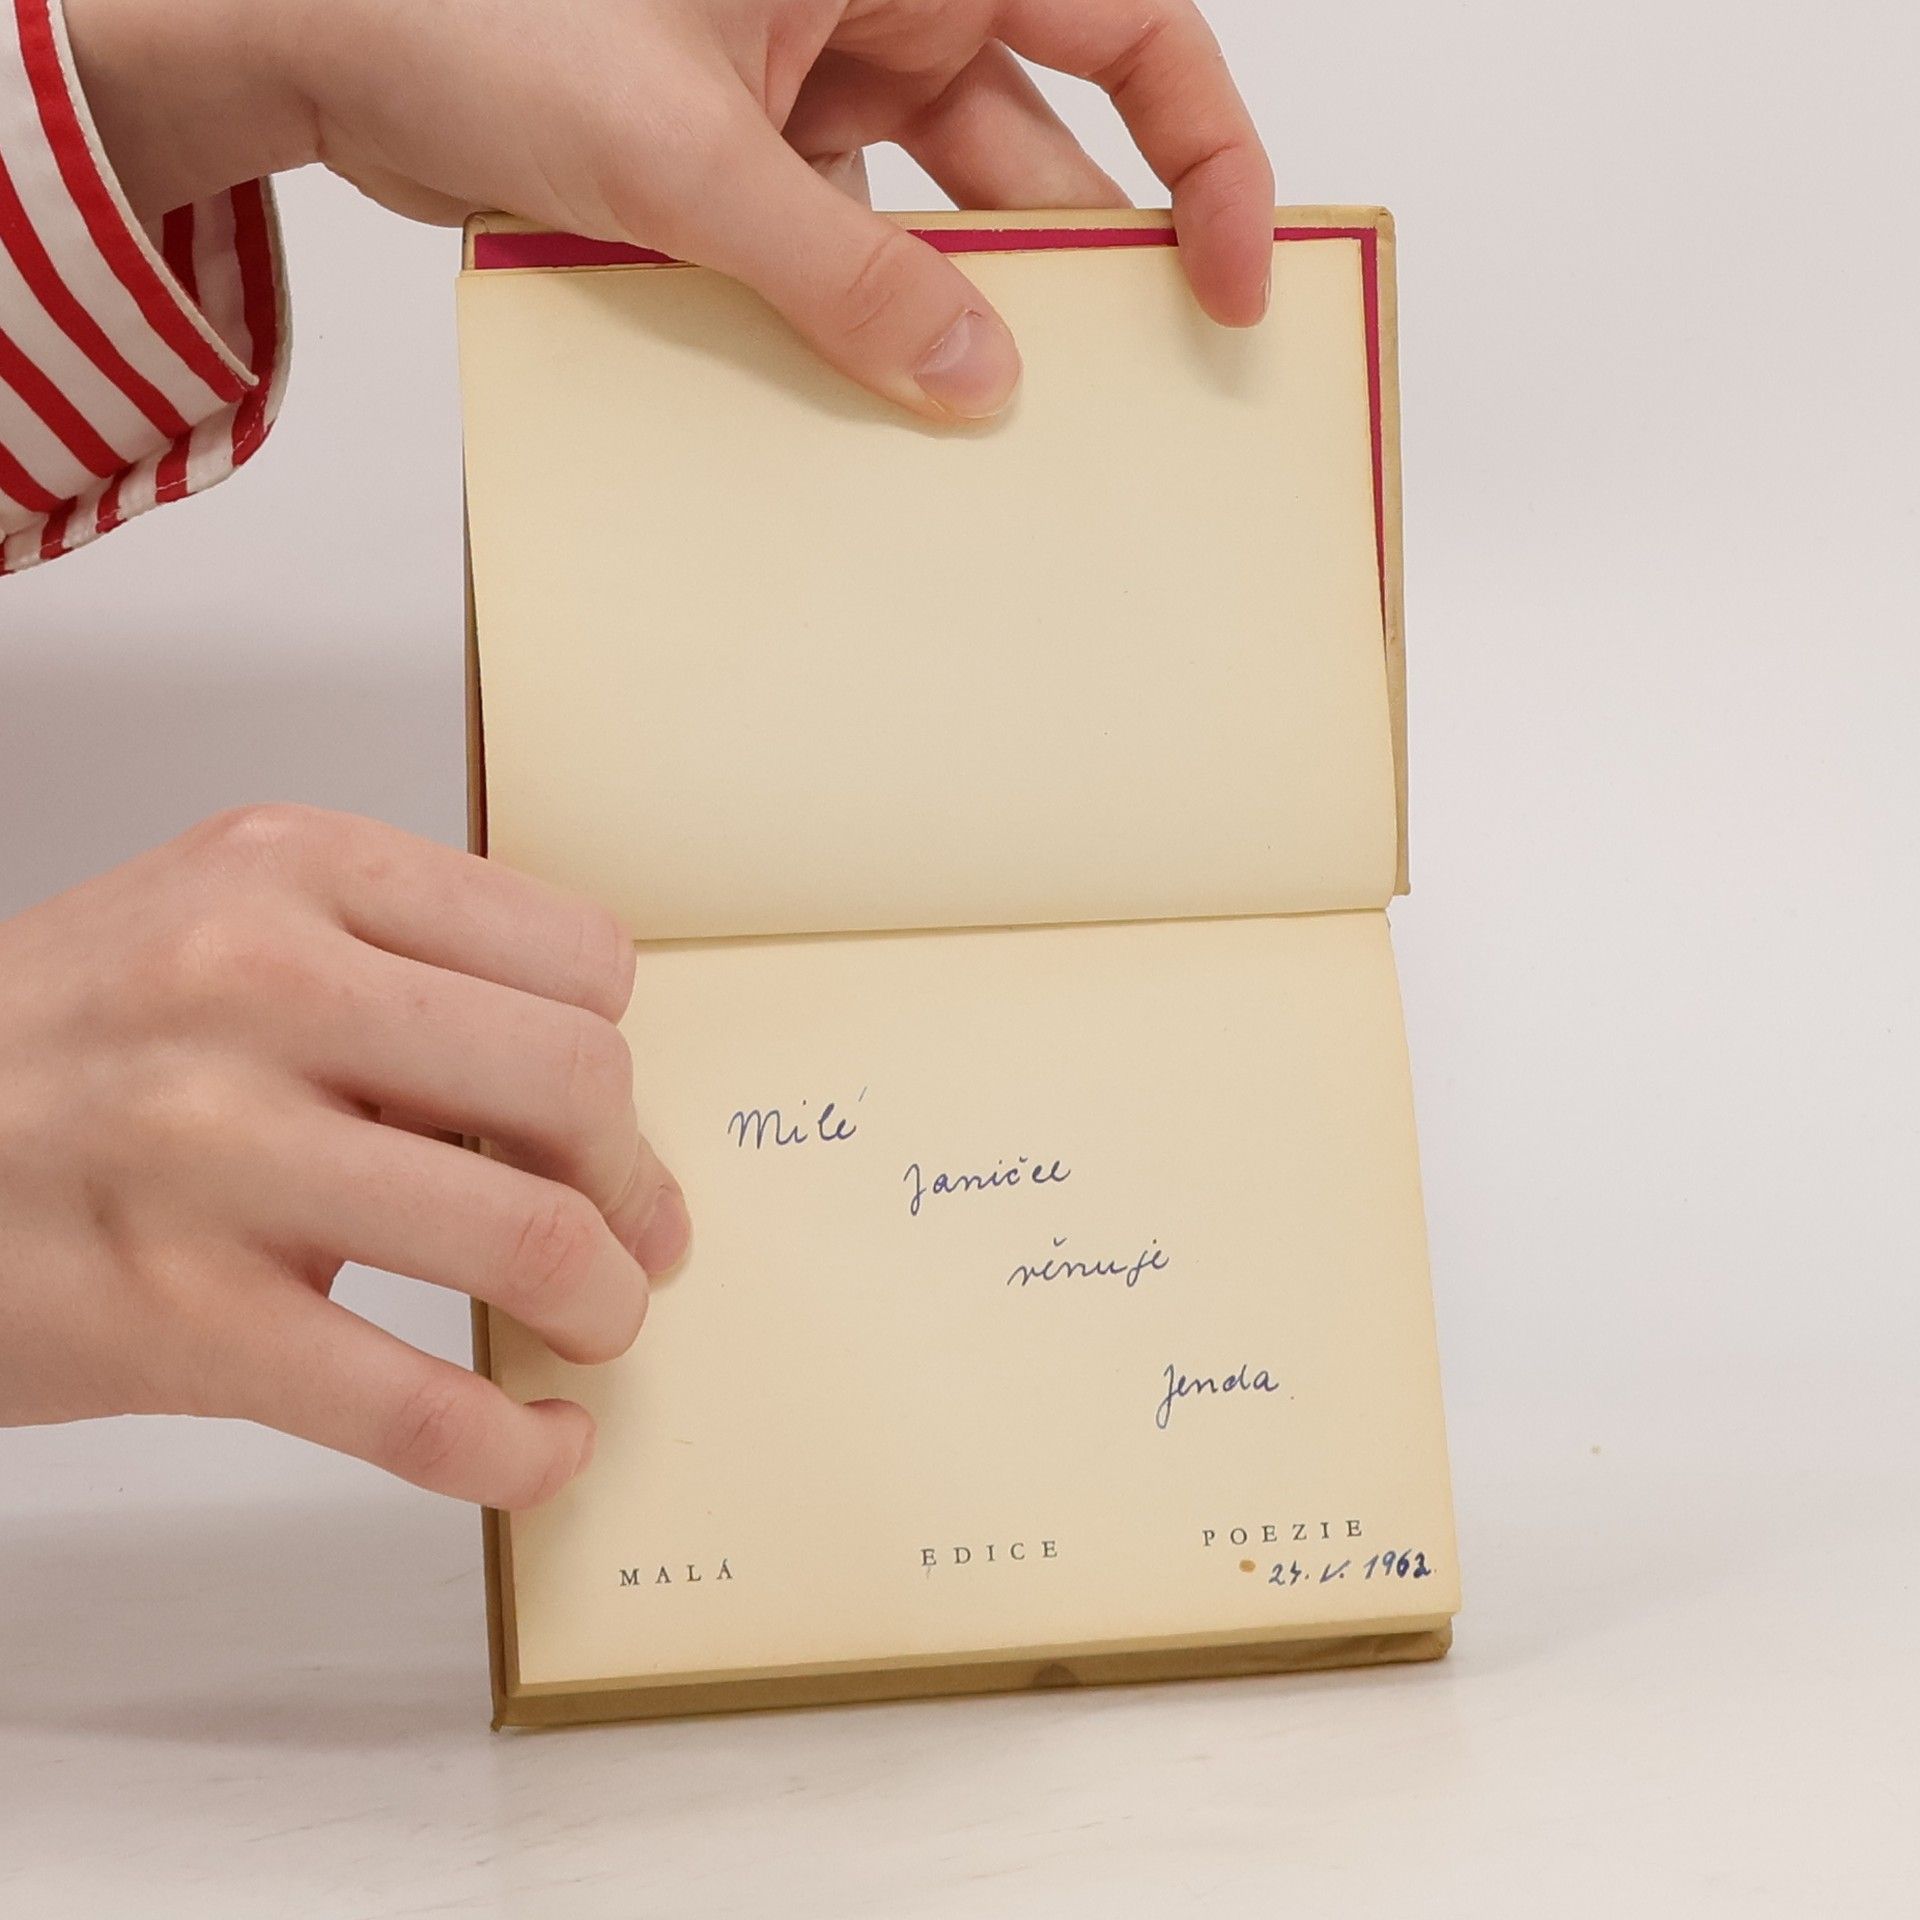 Milé
Janičce
věnuje
Jenda
MALÁ EDICE POEZIE
24. V. 1963